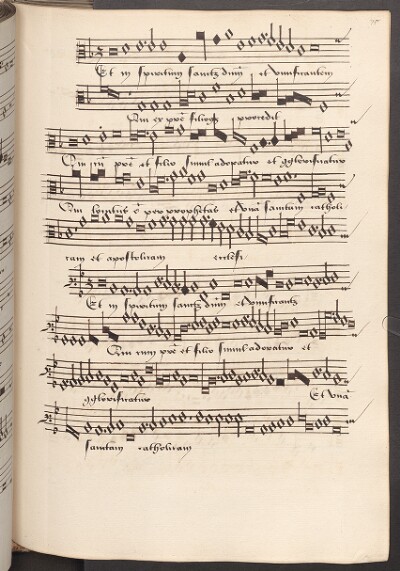 Et in spiritum sanctū dnm̄ et vivificantem
Qui ex pr̄e filioqz procedit
Qui cū pr̄e et filio simul adoratur et 9glorificatur
Qui locutus ē per prophetas Et vnā sanctam catholi
cam et apostolicam ecclesi
Et in spiritum sanctū dnm̄ et vivificantē
Qui cum pr̄e et filio simul adoratur et
9glorificatur Et vnā
sanctam catholicam